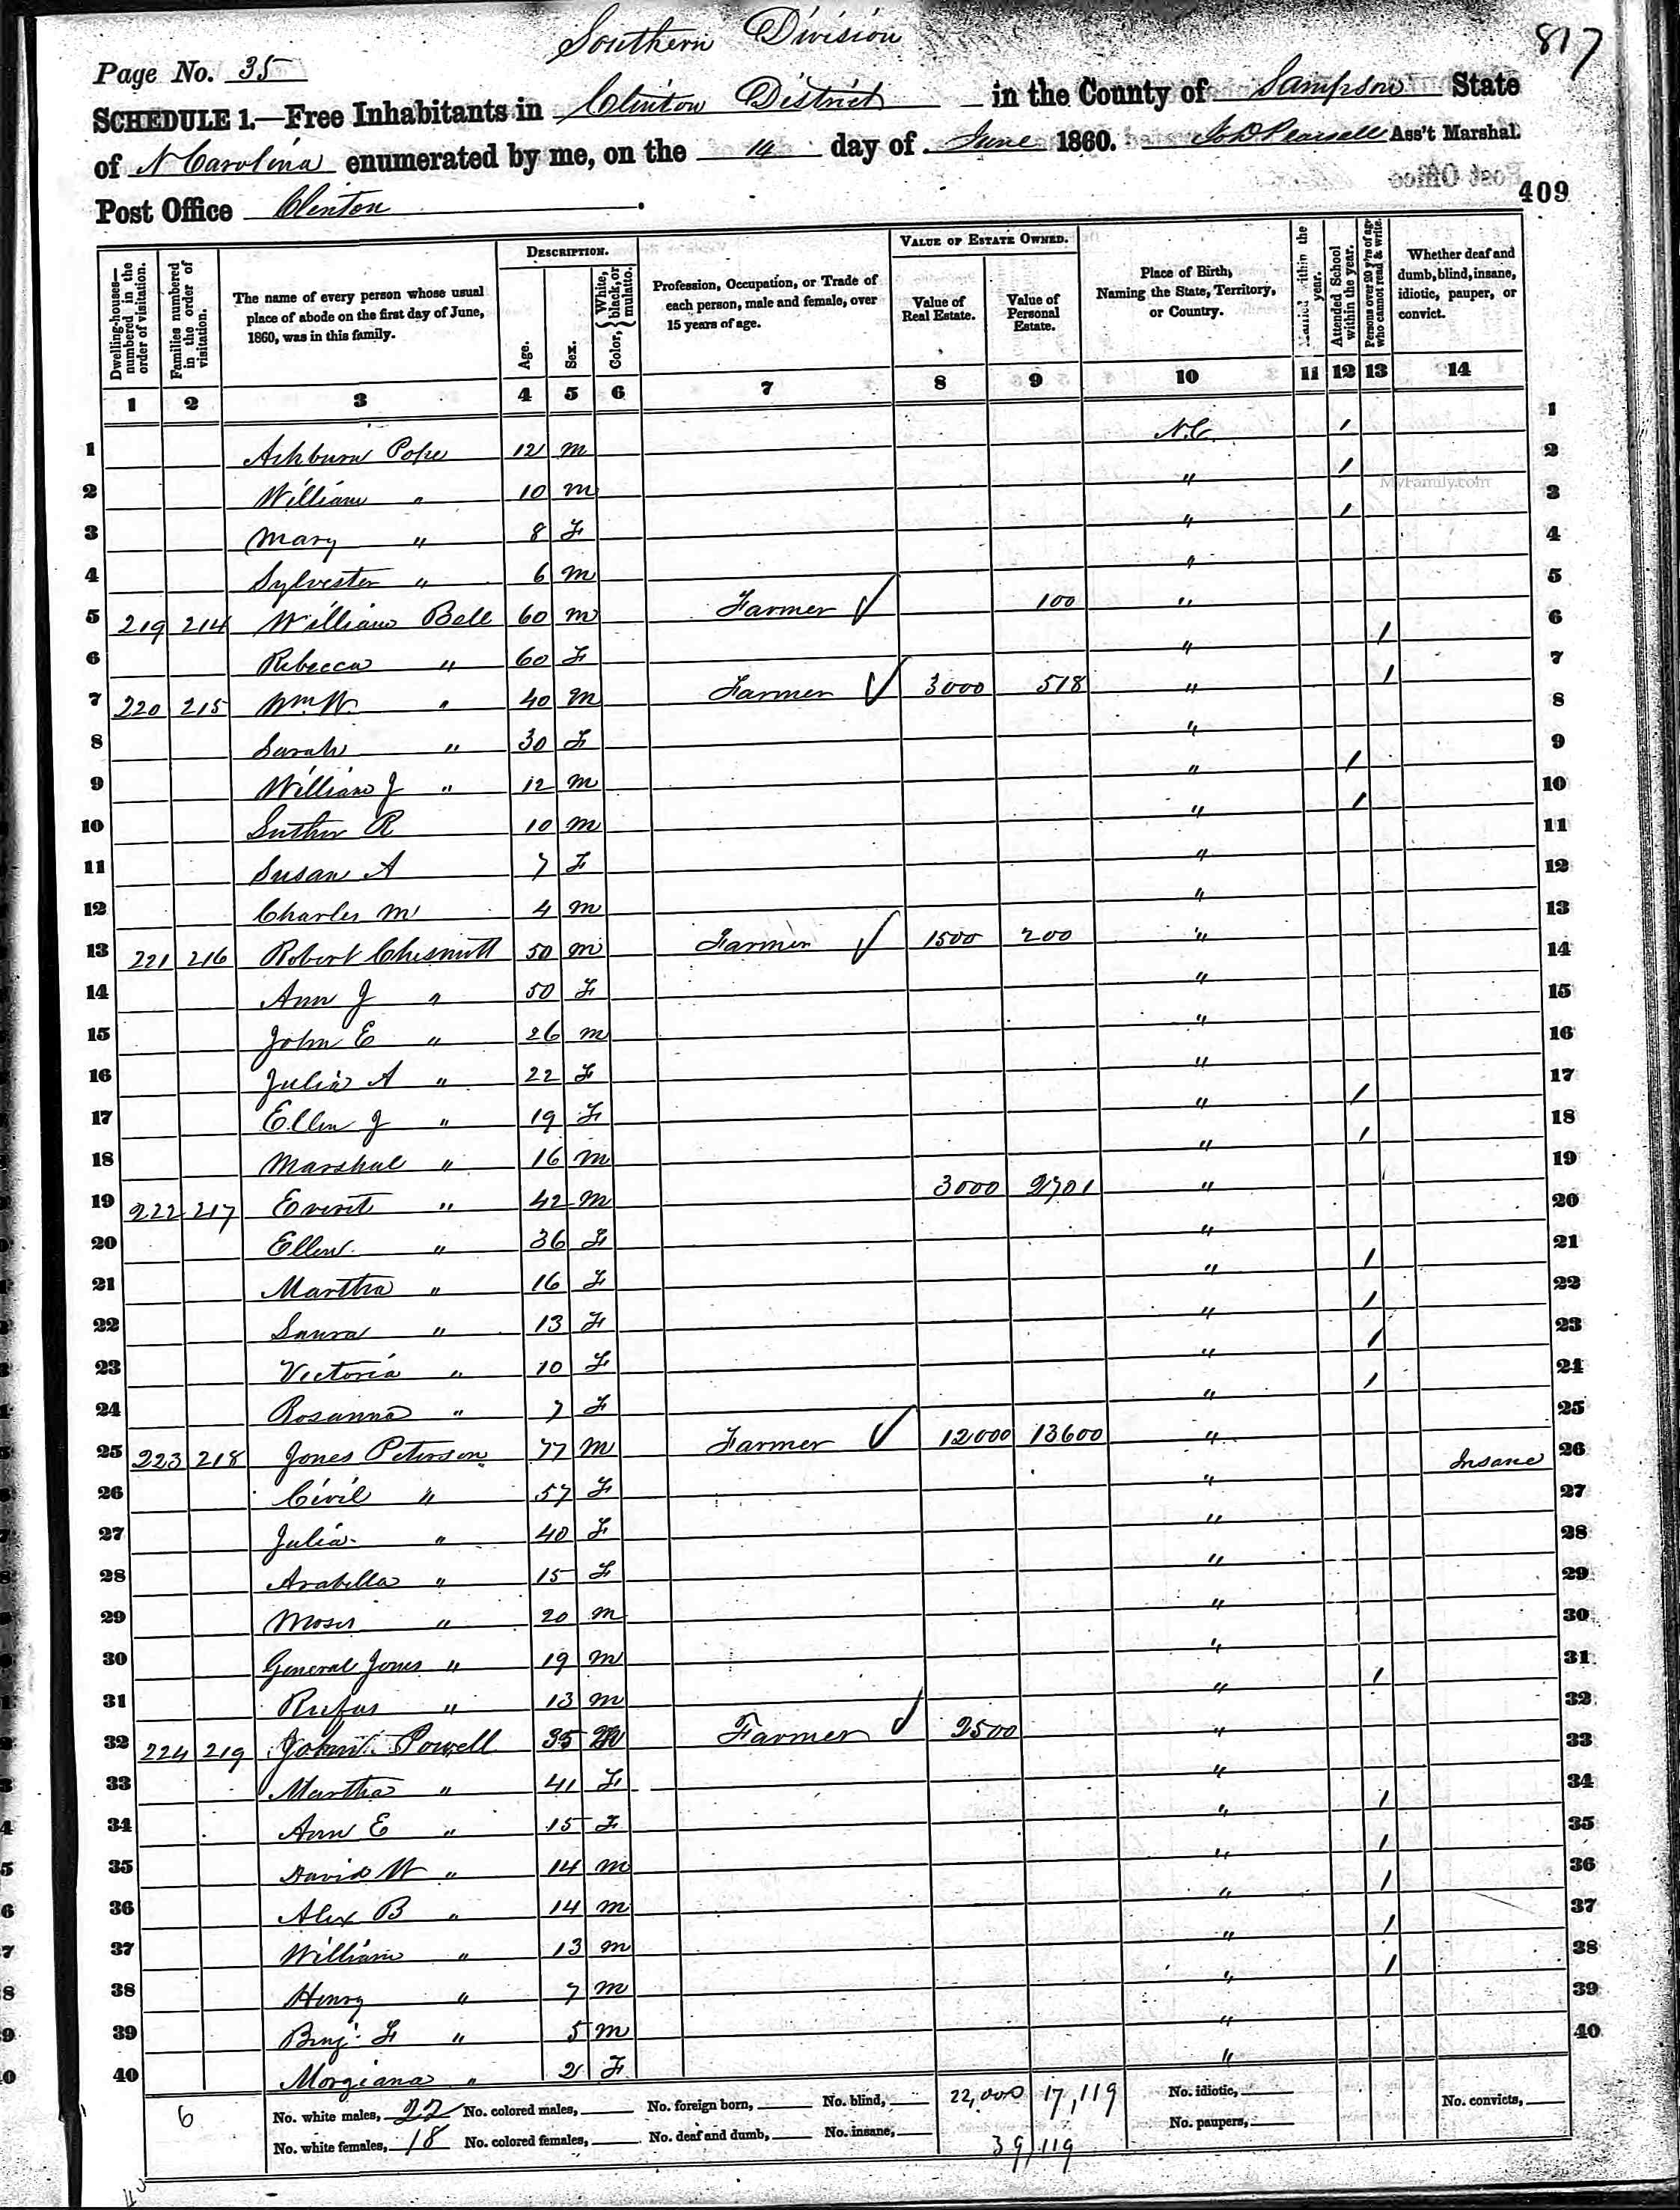 Southern Division
817
Page No. 35
SCHEDULE 1.—Free Inhabitants in Clinton District in the County of Sampson State
of N Carolina enumerated by me, on the 14 day of June 1860. Pearsall Ass't Marshal.
Post Office
Post Office Clinton
409
Dwelling-houses—numbered in the order of visitation. Families numbered in the order of visitation. The name of every person whose usual place of abode on the first day of June, 1860, was in this family. DESCRIPTION. Age. Sex. Color, { White, black, or mulatto. Profession, Occupation, or Trade of each person, male and female, over 15 years of age. VALUE OF ESTATE OWNED. Value of Real Estate. Value of Personal Estate. Place of Birth, Naming the State, Territory, or Country. Married within the year. Attended School within the year. Persons over 20 y'rs of age who cannot read & write. Whether deaf and dumb, blind, insane, idiotic, pauper, or convict.
1 2 3 4 5 6 7 8 9 10 11 12 13 14
1 Ashburn Pope 12 m N.C. / 1
2 William " 10 m " / 2
MyFamily.com
3 Mary " 8 F " / 3
4 Sylvester " 6 m " 4
5 219 214 William Bell 60 m Farmer ✓ 100 " 5
6 Rebecca " 60 F " / 6
7 220 215 Wm W " 40 m Farmer ✓ 3000 518 " / 7
8 Sarah " 30 F " 8
9 William J " 12 m " / 9
10 Luther R 10 m " / 10
11 Susan A 7 F " 11
12 Charles M 4 m " 12
13 221 216 Robert Chesnutt 50 m Farmer ✓ 1500 200 " 13
14 Ann J " 50 F " 14
15 John E " 26 m " 15
16 Julia A " 22 F " 16
17 Ellen J " 19 F " / 17
18 Marshal " 16 m " / 18
19 222 217 Everit " 42 m 3000 2701 " 19
20 Ellen " 36 F " 20
21 Martha " 16 F " / 21
22 Laura " 13 F " / 22
23 Victoria " 10 F " / 23
24 Rosanna " 7 F " / 24
25 223 218 Jones Peterson 77 m Farmer ✓ 12000 13600 " 25
26 Civil " 57 F " Insane 26
27 Julia " 40 F " 27
28 Arabella " 15 F " 28
29 Moses " 20 m " 29
30 General Jones " 19 m " 30
31 Rufus " 13 m " / 31
32 224 219 John Powell 35 m Farmer ✓ 2500 " 32
33 Martha " 41 F " 33
34 Ann E " 15 F " / 34
35 David W " 14 m " / 35
36 Alex B " 14 m " / 36
37 William " 13 m " / 37
38 Henry " 7 m " / 38
39 Benj. F " 5 m " 39
40 Morgiana " 2 F " 40
6 No. white males, 22 No. colored males, No. foreign born, No. blind, 22,000 17,119 No. idiotic, No. convicts,
No. white females, 18 No. colored females, No. deaf and dumb, No. insane, 39,119 No. paupers,